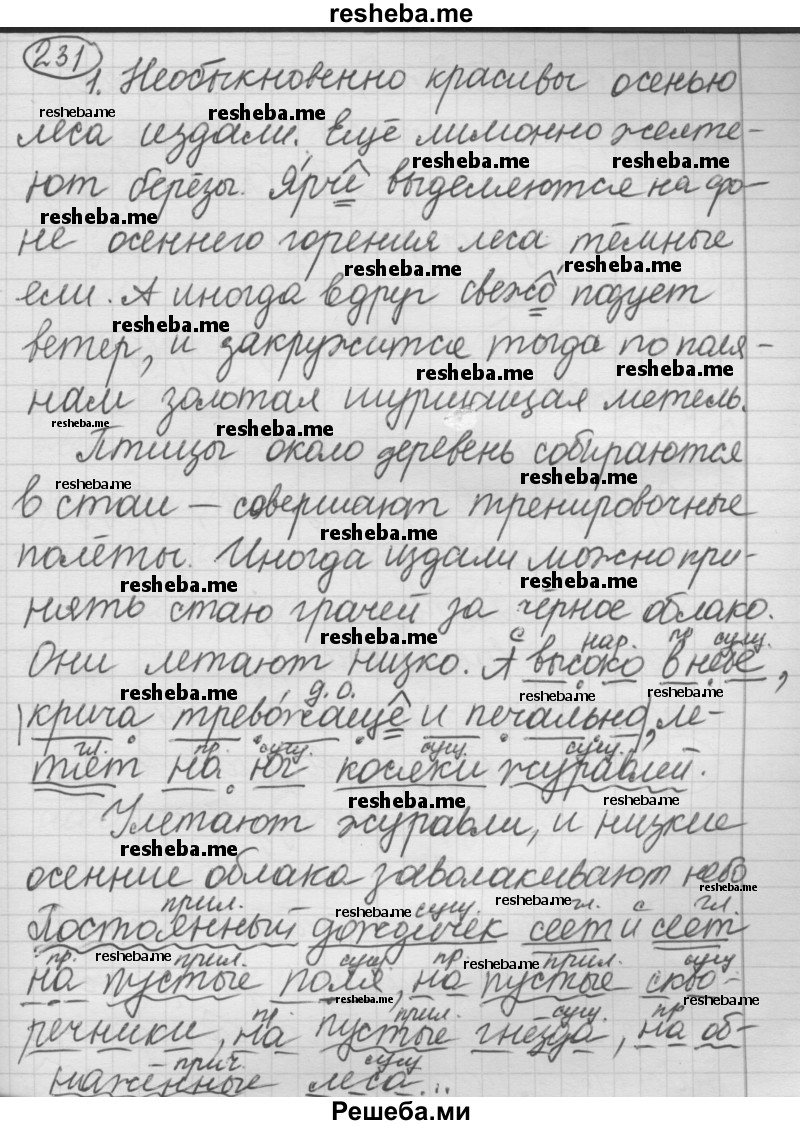 resheba.me
231
1. Необыкновенно красивы осенью
resheba.me resheba.me
леса издали. Ещё лимонно желте-
resheba.me resheba.me
ют берёзы. Ярче выделяются на фо-
resheba.me
не осеннего горения леса тёмные
resheba.me resheba.me
ели. А иногда вдруг свежо подует
resheba.me
ветер, и закружится тогда по поля-
resheba.me resheba.me
нам золотая шуршащая метель.
resheba.me resheba.me
Птицы около деревень собираются
resheba.me resheba.me
в стаи — совершают тренировочные
resheba.me
полёты. Иногда издали можно при-
resheba.me resheba.me
нять стаю грачей за чёрное облако.
resheba.me с нар. пр сущ.
Они летают низко. А высоко в небе,
resheba.me д.о. resheba.me
крича тревожаще и печально, ле-
гл. пр. сущ. сущ. сущ.
тят на юг косяки журавлей.
resheba.me resheba.me
Улетают журавли, и низкие
resheba.me
осенние облака заволакивают небо
resheba.me
прил. resheba.me сущ. resheba.me гл. с гл.
Постоянный дождичек сеет и сеет
пр. resheba.me прил. сущ пр. resheba.me прил. сущ
на пустые поля, на пустые скво-
resheba.me resheba.me
пр. прил. сущ. пр
речники, на пустые гнёзда, на об-
прич. сущ
нажённые леса...
Решеба.ми